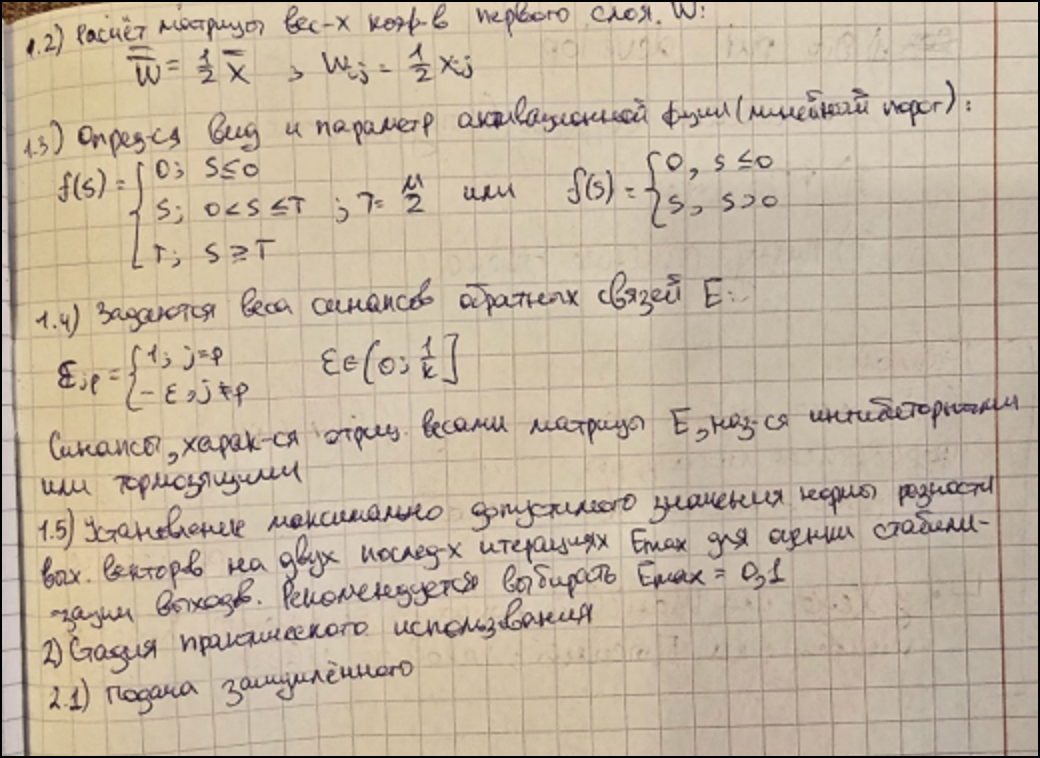 1.2) Расчёт матрицы вес-х коэф-в первого слоя W:
W = 1/2 X , Wij = 1/2 Xij
1.3) Опред-ся вид и параметр активационной ф-ции (линейный порог):
f(s) = { 0; s ≤ 0
s; 0 < s ≤ T ; T = M/2 или f(s) = { 0, s ≤ 0
s, s > 0
T; s ≥ T
1.4) Задаются веса синапсов обратных связей E:
Ejp = { 1; j = p
- ε, j ≠ p ε ∈ (0; 1/k]
Синапсы, харак-ся отриц. весами матрицы E, наз-ся ингибиторными
или тормозящими
1.5) Установление максимально допустимого значения нормы разности
вых. векторов на двух послед-х итерациях Emax для оценки стабили-
зации выходв. Рекомендуется выбирать Emax = 0,1
2) Стадия практического использвания
2.1) Подача зашумлённого